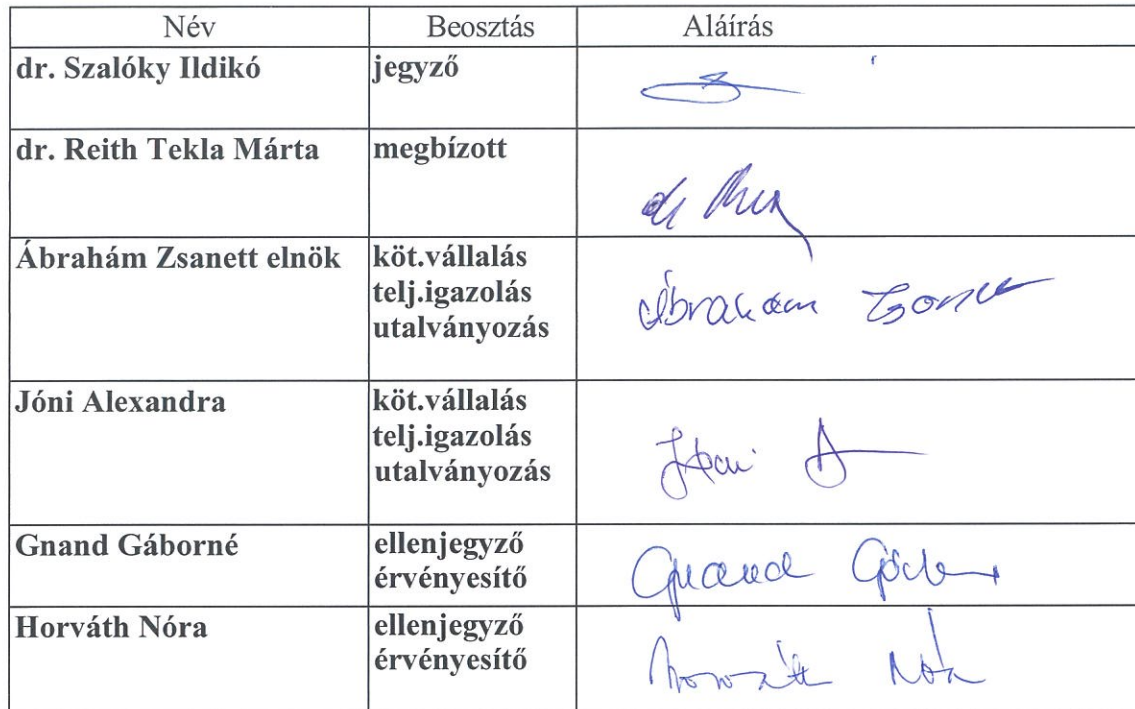 Név Beosztás Aláírás
dr. Szalóky Ildikó jegyző
dr. Reith Tekla Márta megbízott
dr
Ábrahám Zsanett elnök köt.vállalás
telj.igazolás
utalványozás
Ábrahám
Jóni Alexandra köt.vállalás
telj.igazolás
utalványozás
Jóni A
Gnand Gáborné ellenjegyző
érvényesítő
Gnand
Horváth Nóra ellenjegyző
érvényesítő
Horváth Nóra